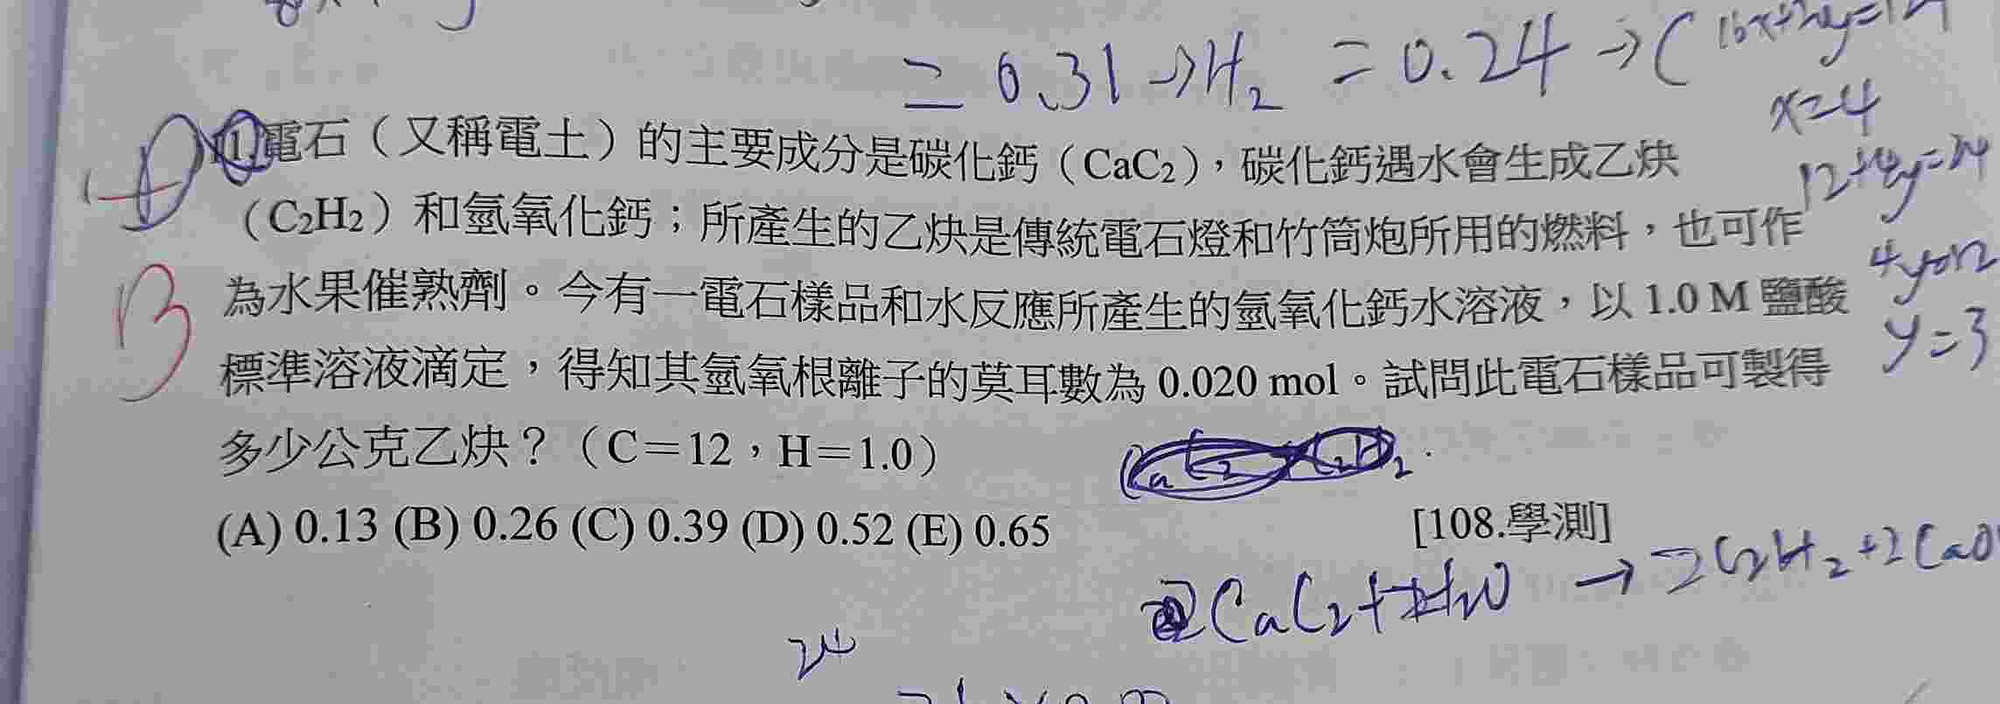 = 0.31 → H₂ = 0.24 → C
x=4
電石（又稱電土）的主要成分是碳化鈣（CaC₂），碳化鈣遇水會生成乙炔
（C₂H₂）和氫氧化鈣；所產生的乙炔是傳統電石燈和竹筒炮所用的燃料，也可作
為水果催熟劑。今有一電石樣品和水反應所產生的氫氧化鈣水溶液，以 1.0 M 鹽酸
y=3
B
標準溶液滴定，得知其氫氧根離子的莫耳數為 0.020 mol。試問此電石樣品可製得
多少公克乙炔？（C＝12，H＝1.0）
(A) 0.13 (B) 0.26 (C) 0.39 (D) 0.52 (E) 0.65
[108.學測]
CaC₂+ H₂O → 2C₂H₂+2CaO